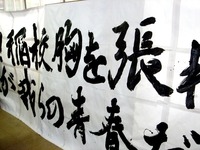 稲校胸を張れ
が我らの青春だ